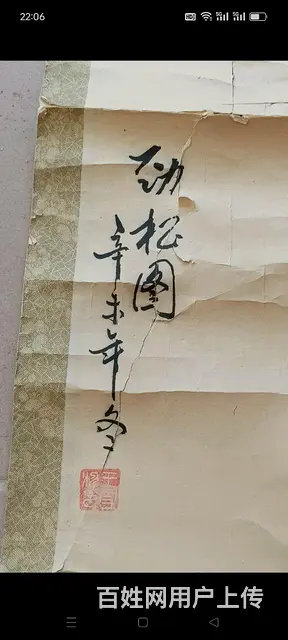 22:06
HD
5G
5G
劲松图
辛未年冬
百姓网用户上传